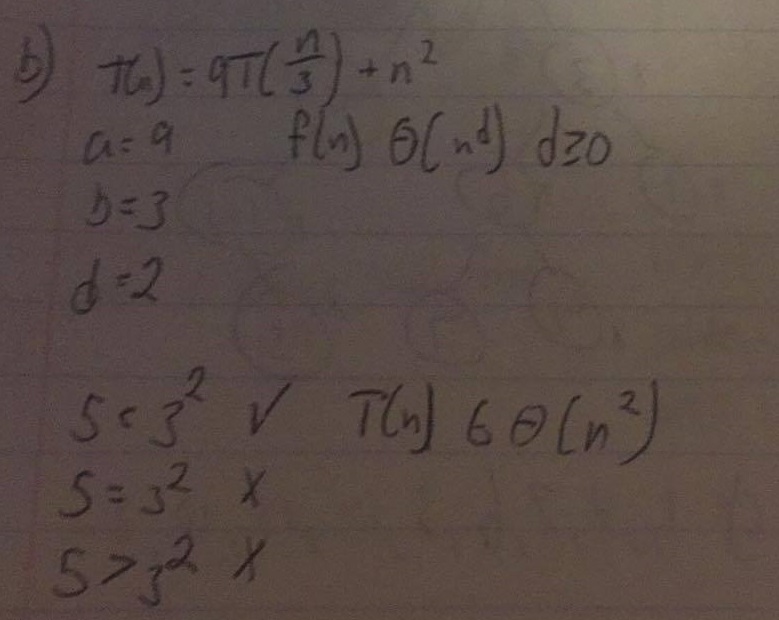 b) T(n) = 9T(n/3) + n²
a = 9 f(n) Θ(n^d) d≥0
b = 3
d = 2
5 < 3² ✓ T(n) ∈ Θ(n²)
5 = 3² X
5 > 3² X